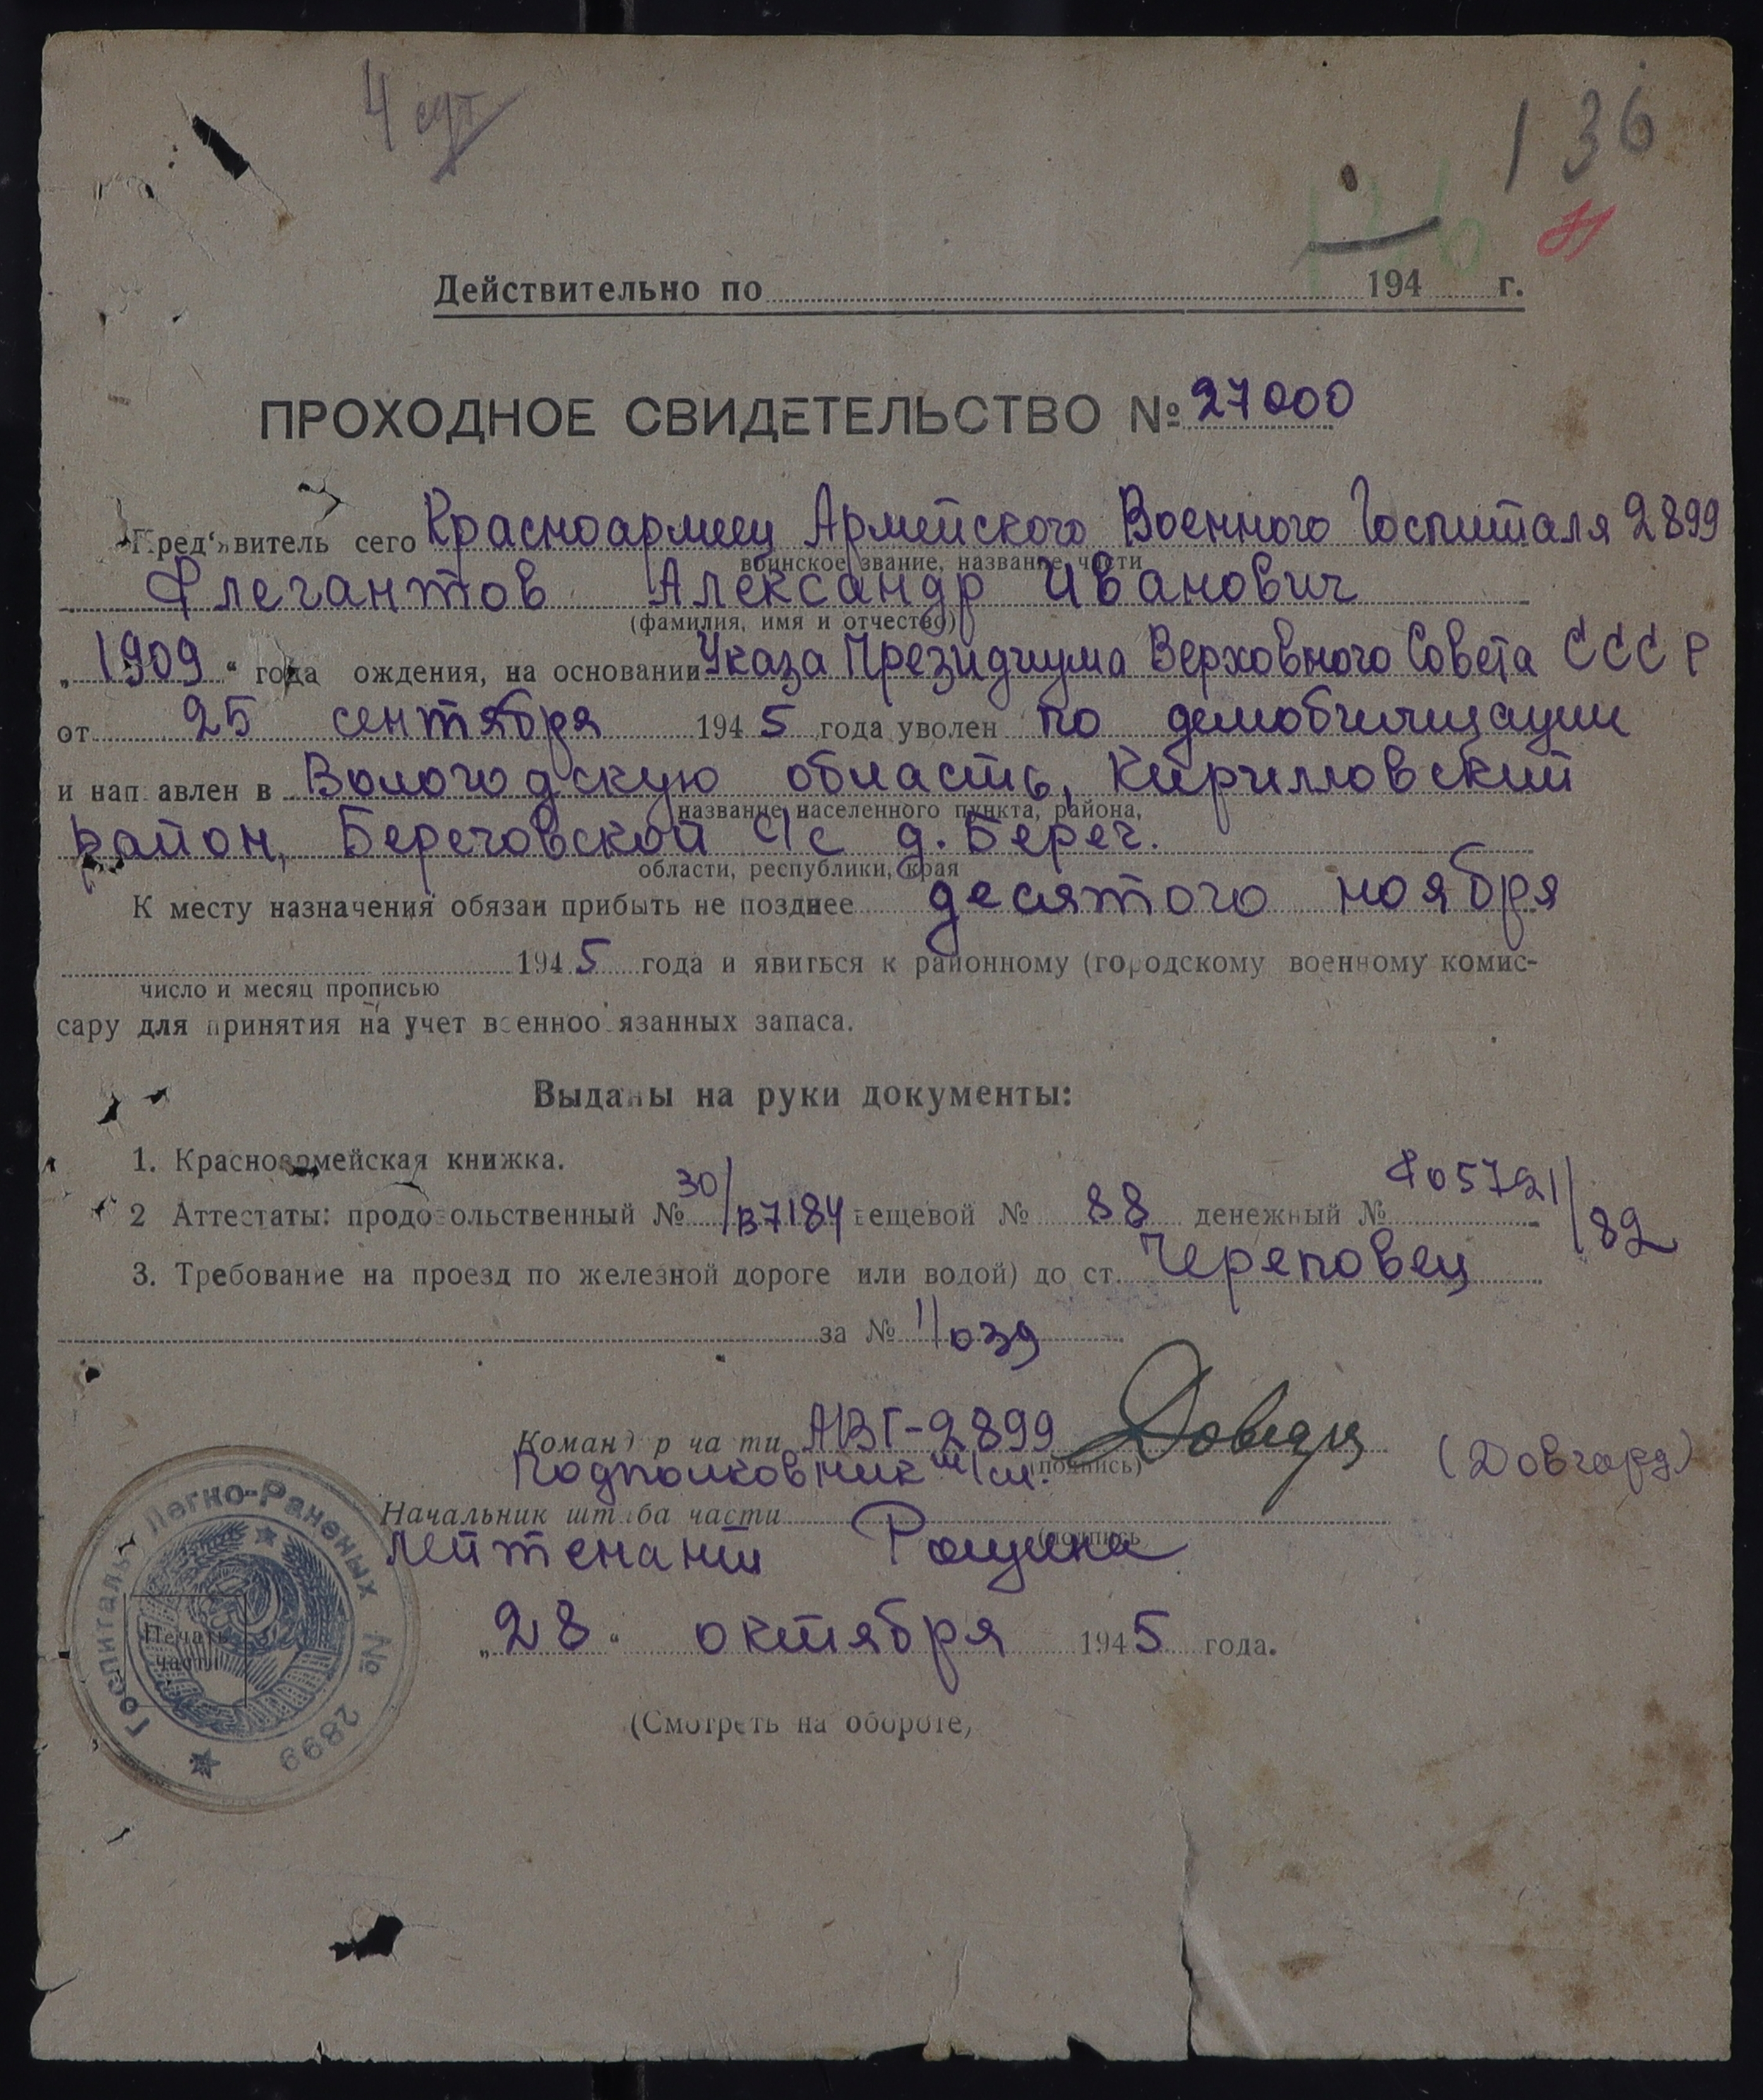 4
136
Действительно по 194 г.
ПРОХОДНОЕ СВИДЕТЕЛЬСТВО № 27000
Пред'явитель сего Красноармеец Армейского Военного Госпиталя 2899
воинское звание, название части
Флегантов Александр Иванович
(фамилия, имя и отчество)
„1909“ года рождения, на основании Указа Президиума Верховного Совета СССР
от 25 сентября 1945 года уволен по демобилизации
и направлен в Вологодскую область, Кирилловский
название населенного пункта, района,
район, Береговской с/с д. Берег.
области, республики, края
К месту назначения обязан прибыть не позднее десятого ноября
1945 года и явиться к районному (городскому военному комис-
число и месяц прописью
сару для принятия на учет военнообязанных запаса.
Выданы на руки документы:
1. Красноармейская книжка.
2 Аттестаты: продовольственный № 30/В7184 вещевой № 88 денежный № Ф05721/82
3. Требование на проезд по железной дороге или водой) до ст. Череповец
за № 11/039
Командир части АВГ-2899
Подполковник м/сл. (подпись) (Довгард)
Начальник штаба части
(подпись
Лейтенант Рощина
„28“ октября 1945 года.
Госпиталь Легко-Раненых № 2899
Печать
части
(Смотреть на обороте)